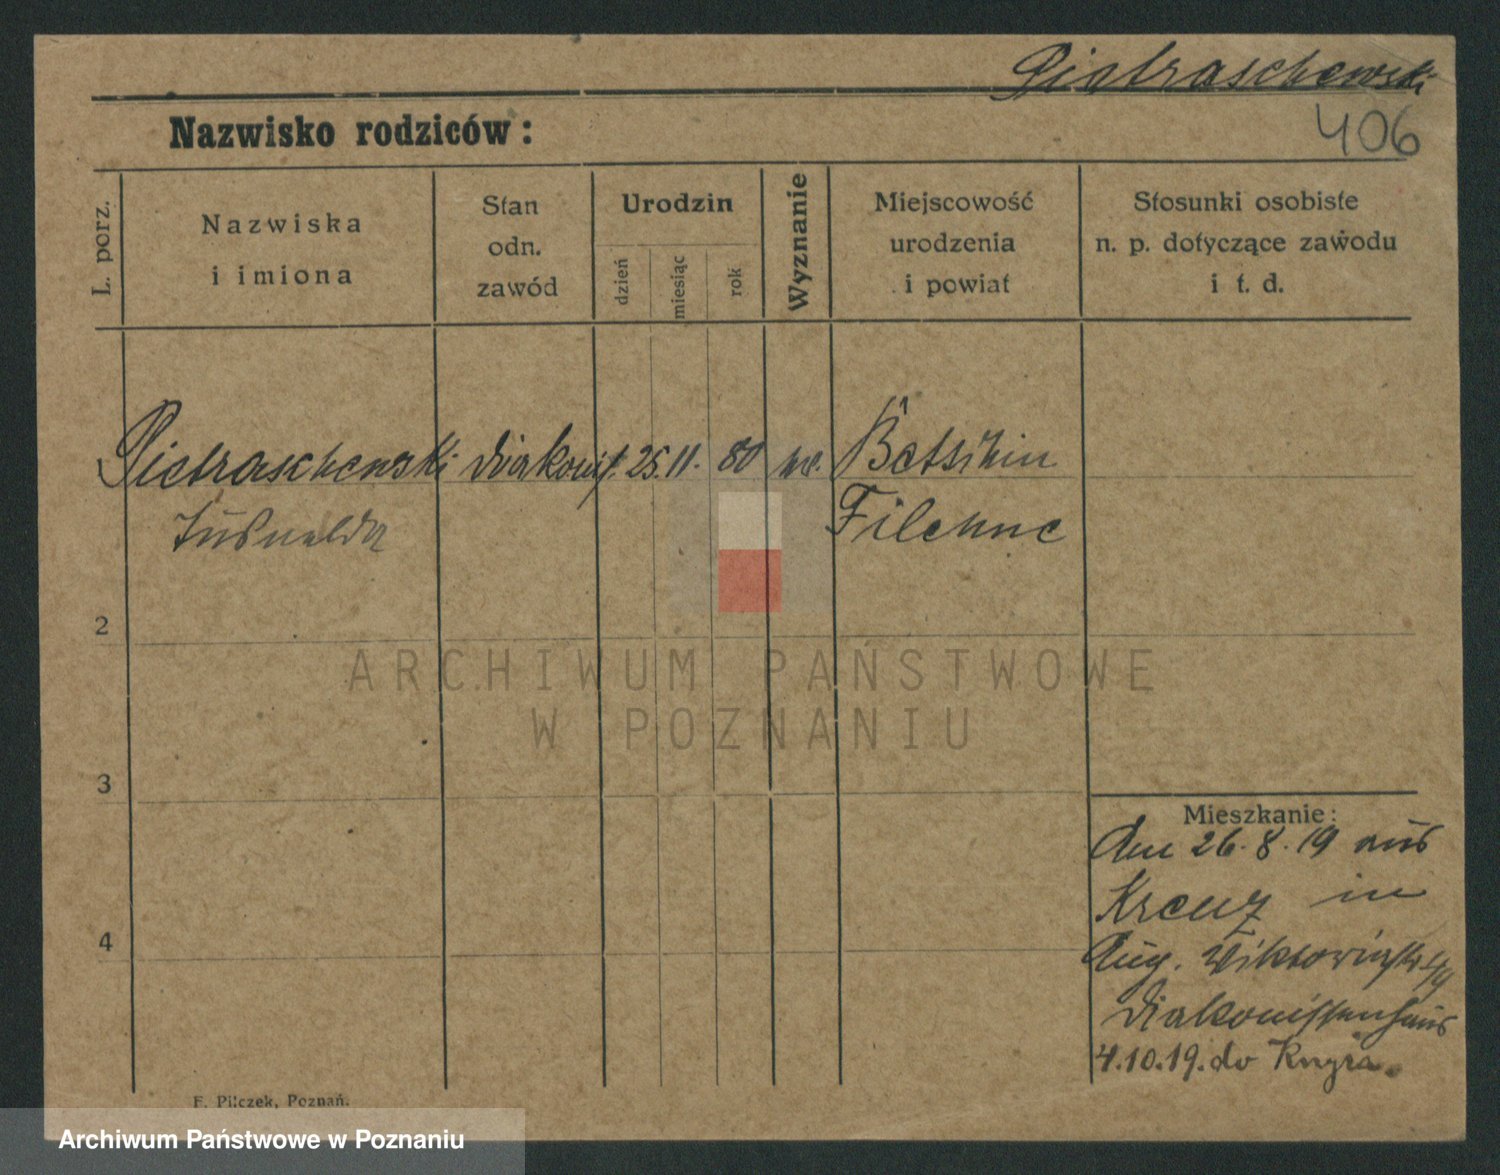 Pietraschewski
406
Nazwisko rodziców:
L. porz.
Nazwiska
i imiona
Stan
odn.
zawód
Urodzin
dzień
miesiąc
rok
Wyznanie
Miejscowość
urodzenia
i powiat
Stosunki osobiste
n. p. dotyczące zawodu
i t. d.
1 Pietraschewski Diakonis. 25. 11. 80
Filehne
2
3
4
Mieszkanie:
Am 26.8.19 aus
Kreuz in
Aug.
Diakonissenhaus
4.10.19. do
F. Pilczek, Poznań.
ARCHIWUM PAŃSTWOWE
W POZNANIU
Archiwum Państwowe w Poznaniu